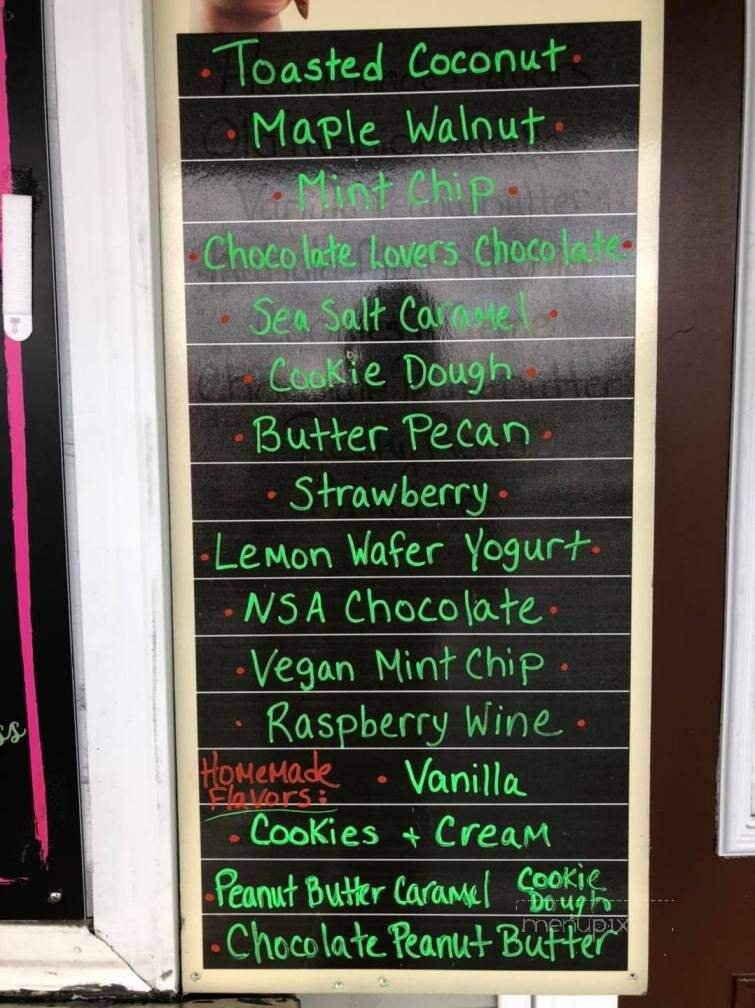 Toasted Coconut
Maple Walnut
Mint Chip
Chocolate Lovers Chocolate
Sea Salt Caramel
Cookie Dough
Butter Pecan
Strawberry
Lemon Wafer Yogurt
NSA Chocolate
Vegan Mint Chip
Raspberry Wine
Homemade Flavors: • Vanilla
Cookies + Cream
Peanut Butter Caramel Cookie Dough
Chocolate Peanut Butter
menupix